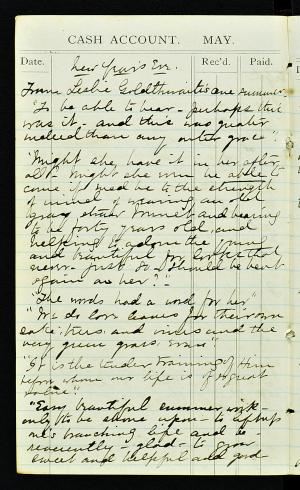 CASH ACCOUNT. MAY.
Date. Rec'd. Paid.
New Years Ev.
From Leslie Goldthwaite's one summer
"To be able to bear - perhaps this
was it - and this was greater
indeed than any outer grace."
"Might she have it in her after
all? Might she even be able to
come if need be to the strength
of mind of wearing an old
gray straw bonnet and bearing
to be forty years old, and
helping to adorn the young
and beautiful for looks that
never - just so - should be bent
again on her?"
"The woods had a word for her"
"We do love leaves for their own
sake; trees, and vines and the
very green grass, even"
"It is the tender training of Him
before whom our life is of
"Easy beautiful summer work -
only to be shone upon - to
one's branching life and be
reverently - glad - to grow
sweet and helpful and good